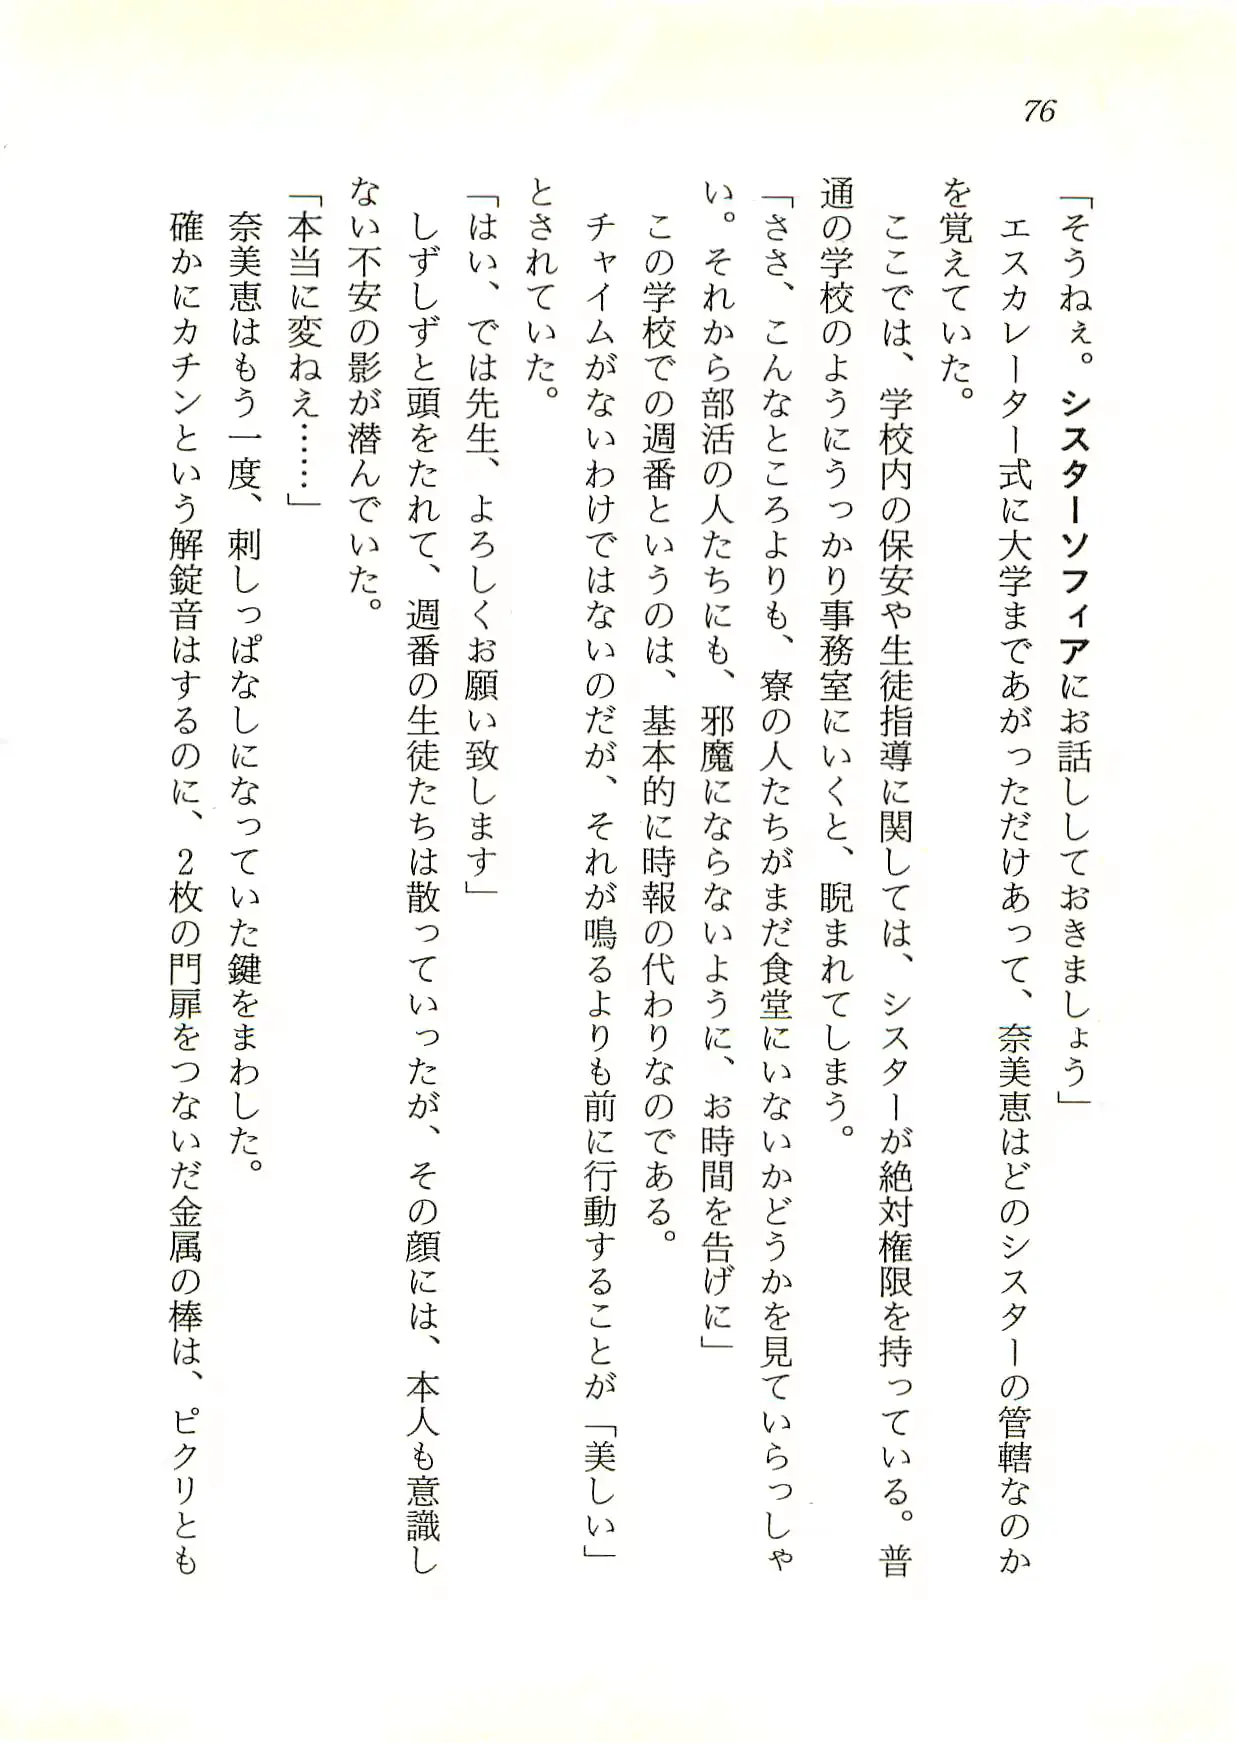 76
「そうねぇ。シスターソフィアにお話ししておきましょう」
　エスカレーター式に大学まであがっただけあって、奈美恵はどのシスターの管轄なのか
を覚えていた。
　ここでは、学校内の保安や生徒指導に関しては、シスターが絶対権限を持っている。普
通の学校のようにうっかり事務室にいくと、睨まれてしまう。
「ささ、こんなところよりも、寮の人たちがまだ食堂にいないかどうかを見ていらっしゃ
い。それから部活の人たちにも、邪魔にならないように、お時間を告げに」
　この学校での週番というのは、基本的に時報の代わりなのである。
　チャイムがないわけではないのだが、それが鳴るよりも前に行動することが「美しい」
とされていた。
「はい、では先生、よろしくお願い致します」
　しずしずと頭をたれて、週番の生徒たちは散っていったが、その顔には、本人も意識し
ない不安の影が潜んでいた。
「本当に変ねえ……」
　奈美恵はもう一度、刺しっぱなしになっていた鍵をまわした。
　確かにカチンという解錠音はするのに、2枚の門扉をつないだ金属の棒は、ピクリとも